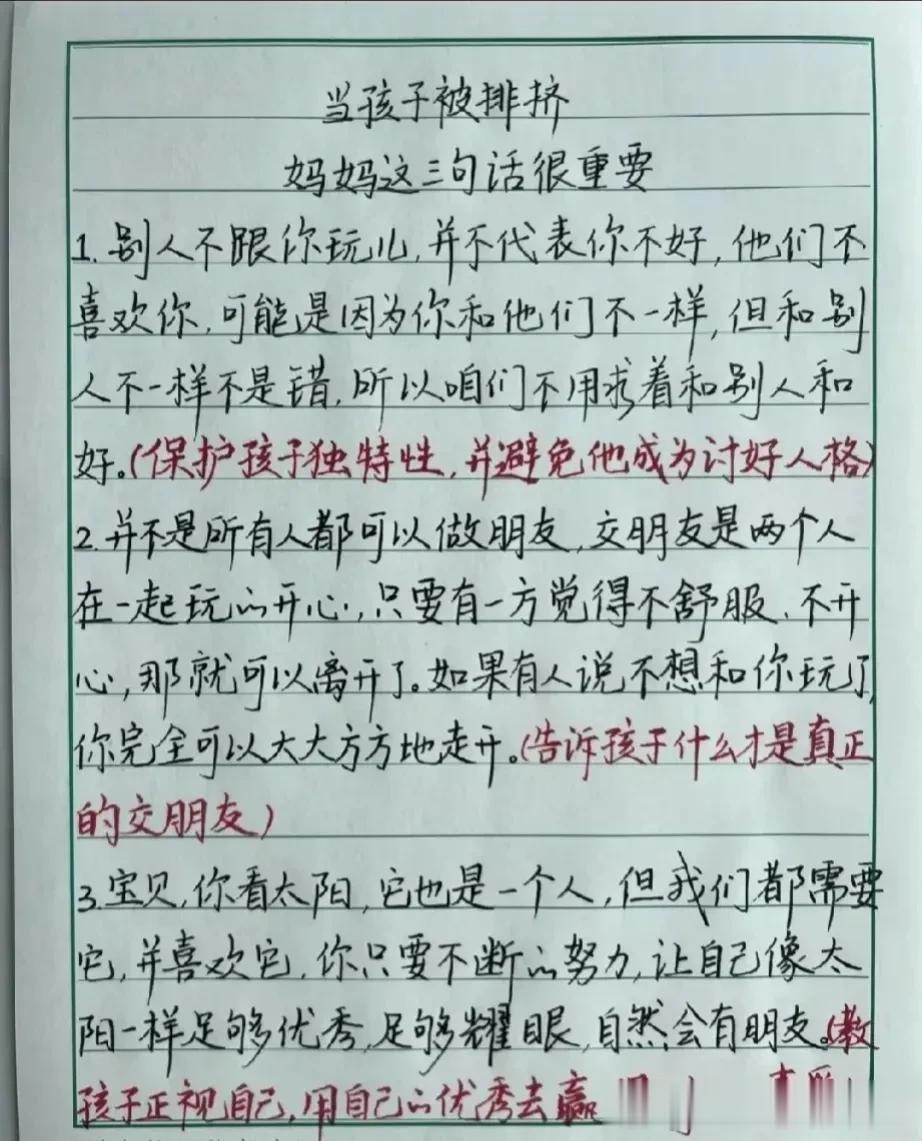 当孩子被排挤
妈妈这三句话很重要
1.别人不跟你玩儿,并不代表你不好,他们不
喜欢你,可能是因为你和他们不一样,但和别
人不一样不是错,所以咱们不用求着和别人和
好。(保护孩子独特性,并避免他成为讨好人格)
2.并不是所有人都可以做朋友,交朋友是两个人
在一起玩的开心,只要有一方觉得不舒服、不开
心,那就可以离开了。如果有人说不想和你玩了,
你完全可以大大方方地走开。(告诉孩子什么才是真正
的交朋友)
3.宝贝,你看太阳,它也是一个人,但我们都需要
它,并喜欢它,你只要不断的努力,让自己像太
阳一样足够优秀,足够耀眼,自然会有朋友。(教
孩子正视自己,用自己的优秀去赢